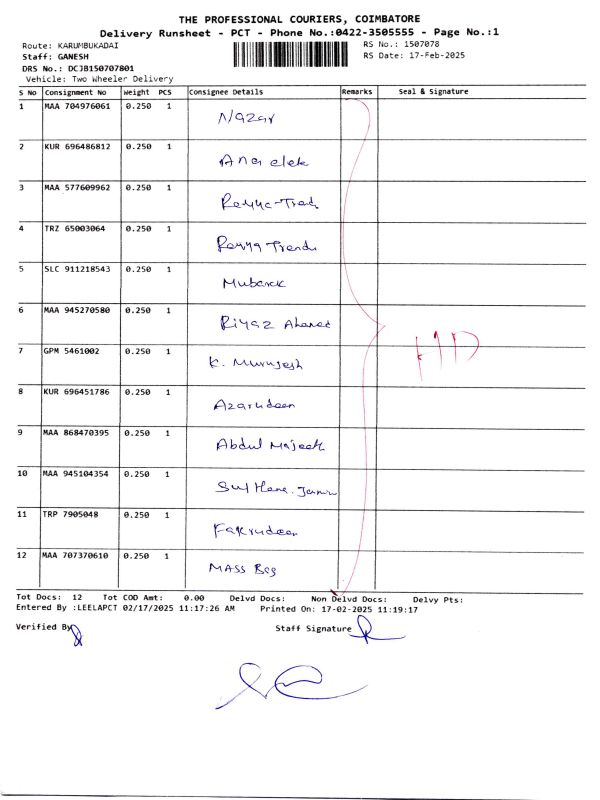 THE PROFESSIONAL COURIERS, COIMBATORE
Delivery Runsheet - PCT - Phone No.:0422-3505555 - Page No.:1
Route: KARUMBUKADAI RS No.: 1507078
Staff: GANESH RS Date: 17-Feb-2025
DRS No.: DCJB150707801
Vehicle: Two Wheeler Delivery
S No Consignment No Weight PCS Consignee Details Remarks Seal & Signature
1 MAA 704976061 0.250 1 Nazar
2 KUR 696486812 0.250 1
3 MAA 577609962 0.250 1
4 TRZ 65003064 0.250 1 Ramya Trends
5 SLC 911218543 0.250 1 Mubarak
6 MAA 945270580 0.250 1 Riyaz Ahamed
7 GPM 5461002 0.250 1 K. Murugesh
8 KUR 696451786 0.250 1 Azarudeen
9 MAA 868470395 0.250 1 Abdul Majeeth
10 MAA 945104354 0.250 1
11 TRP 7905048 0.250 1 Fakrudeen
12 MAA 707370610 0.250 1 MASS Bag
Tot Docs: 12 Tot COD Amt: 0.00 Delvd Docs: Non Delvd Docs: Delvy Pts:
Entered By :LEELAPCT 02/17/2025 11:17:26 AM Printed On: 17-02-2025 11:19:17
Verified By Staff Signature